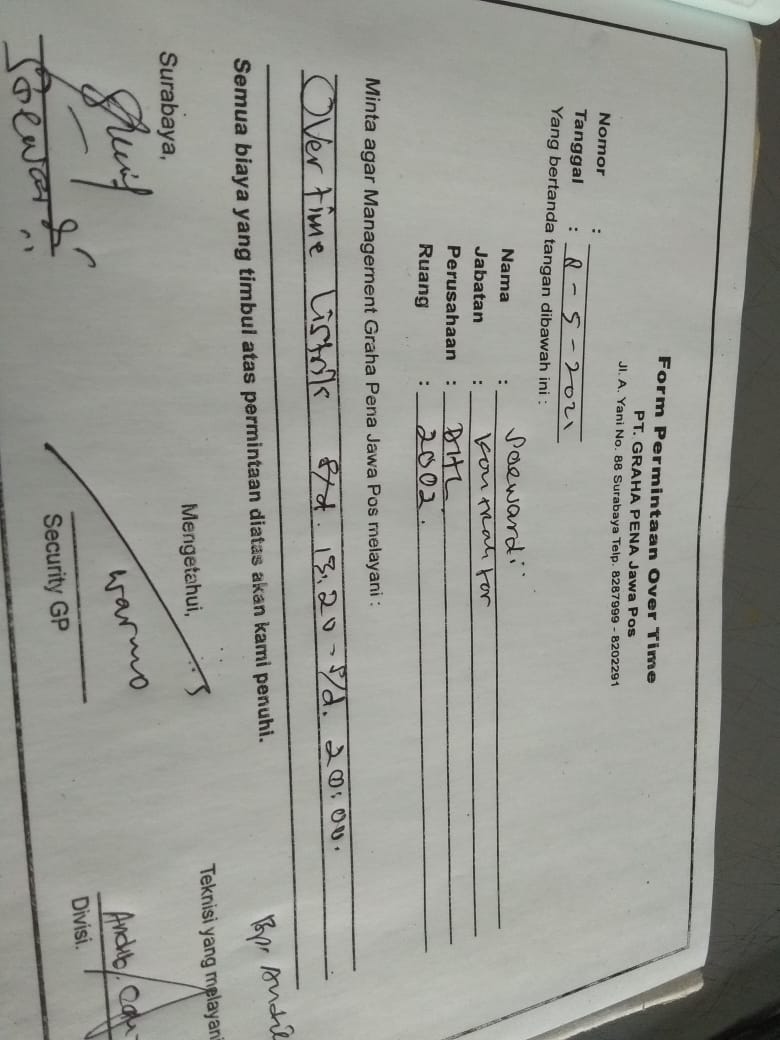 Form Permintaan Over Time
PT. GRAHA PENA Jawa Pos
Jl. A. Yani No. 88 Surabaya Telp. 8287999 - 8202291
Nomor :
Tanggal : 8 - 5 - 2021
Yang bertanda tangan dibawah ini :
Nama : Soewardi
Jabatan : Kontraktor
Perusahaan : DHL
Ruang : 2002.
Minta agar Management Graha Pena Jawa Pos melayani :
Over time Listrik s/d. 13.20 - s/d. 20.00.
Semua biaya yang timbul atas permintaan diatas akan kami penuhi.
Surabaya,
Mengetahui,
Teknisi yang melayani
Soewardi
Warno
Security GP
Divisi.